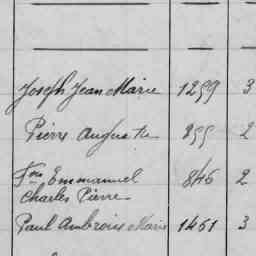 Joseph Jean Marie 1259 3
Pierre Auguste 855 2
Fois Emmanuel 846 2
Charles Pierre
Paul Ambroise Marie 1451 3